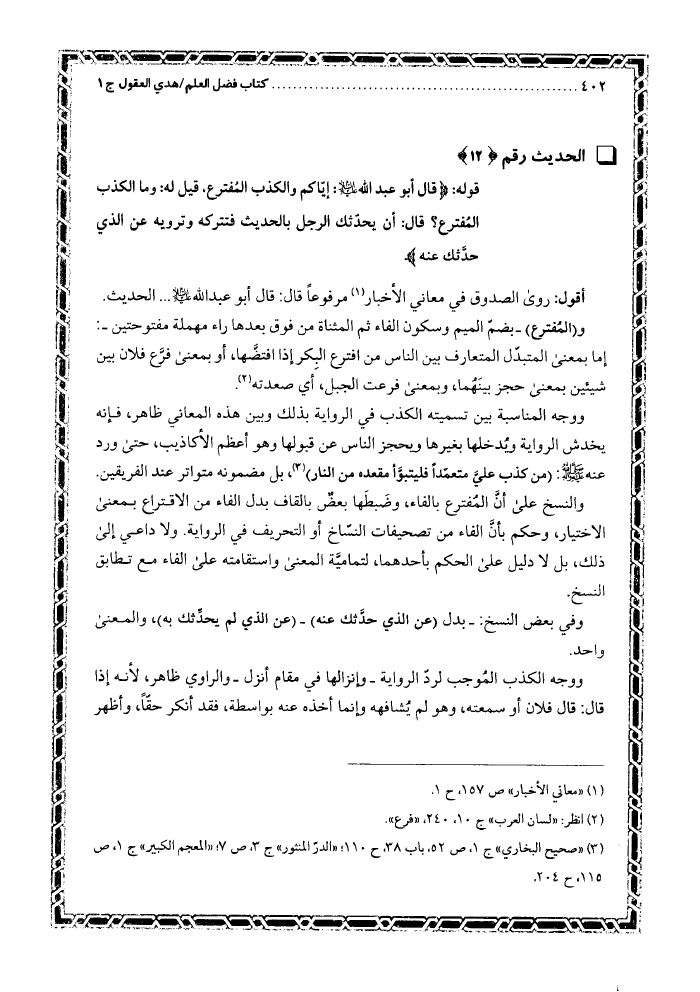 ٤٠٢ ........................................................ كتاب فضل العلم/هدي العقول ج١
❏ الحديث رقم ﴿ ١٢﴾
قوله: ﴿ قال أبو عبد الله ﷷ: إيّاكم والكذب المُفترع، قيل له: وما الكذب
المُفترع؟ قال: أن يحدّثك الرجل بالحديث فتتركه وترويه عن الذي
حدَّثك عنه ﴾.
أقول: روىٰ الصدوق في معاني الأخبار(١) مرفوعاً قال: قال أبو عبدالله ... الحديث.
و(المُفترع) ـ بضمّ الميم وسكون الفاء ثم المثناة من فوق بعدها راء مهملة مفتوحتين ـ:
إما بمعنىٰ المتبدّل المتعارف بين الناس من افترع البِكر إذا افتضَّها، أو بمعنىٰ فرَّع فلان بين
شيئين بمعنىٰ حجز بينَهُما، وبمعنىٰ فرعت الجبل، أي صعدته(٢).
ووجه المناسبة بين تسميته الكذب في الرواية بذلك وبين هذه المعاني ظاهر، فـإنه
يخدش الرواية ويُدخلها بغيرها ويحجز الناس عن قبولها وهو أعظم الأكاذيب، حتىٰ ورد
عنه ﷺ: (من كذب عليَّ متعمّداً فليتبوَّأ مقعده من النار)(٣)، بل مضمونه متواتر عند الفريقين.
والنسخ علىٰ أنَّ المُفترع بالفاء، وضَبطَها بعضٌ بالقاف بدل الفاء من الاقـتراع بـمعنىٰ
الاختيار، وحكم بأنَّ الفاء من تصحيفات النسّاخ أو التحريف في الرواية. ولا داعـي إلىٰ
ذلك، بل لا دليل علىٰ الحكم بأحدهما، لتماميَّة المعنىٰ واستقامته علىٰ الفاء مـع تـطابق
النسخ.
وفي بعض النسخ: ـ بدل (عن الذي حدَّثك عنه) ـ (عن الذي لم يحدِّثك به)، والمـعنىٰ
واحد.
ووجه الكذب المُوجب لردّ الرواية ـ وإنزالها في مقام أنزل ـ والراوي ظاهر، لأنـه إذا
قال: قال فلان أو سمعته، وهو لم يُشافهه وإنما أخذه عنه بواسطة، فقد أنكر حقّاً، وأظهر
(١) «معاني الأخبار» ص ١٥٧، ح ١.
(٢) انظر: «لسان العرب» ج ١٠، ٢٤٠، «فرع».
(٣) «صحيح البخاري» ج ١، ص ٥٢، باب ٣٨، ح ١١٠؛ «الدرّ المنثور» ج ٣، ص ٧؛ «المعجم الكبير» ج ١، ص
١١٥، ح ٢٠٤.